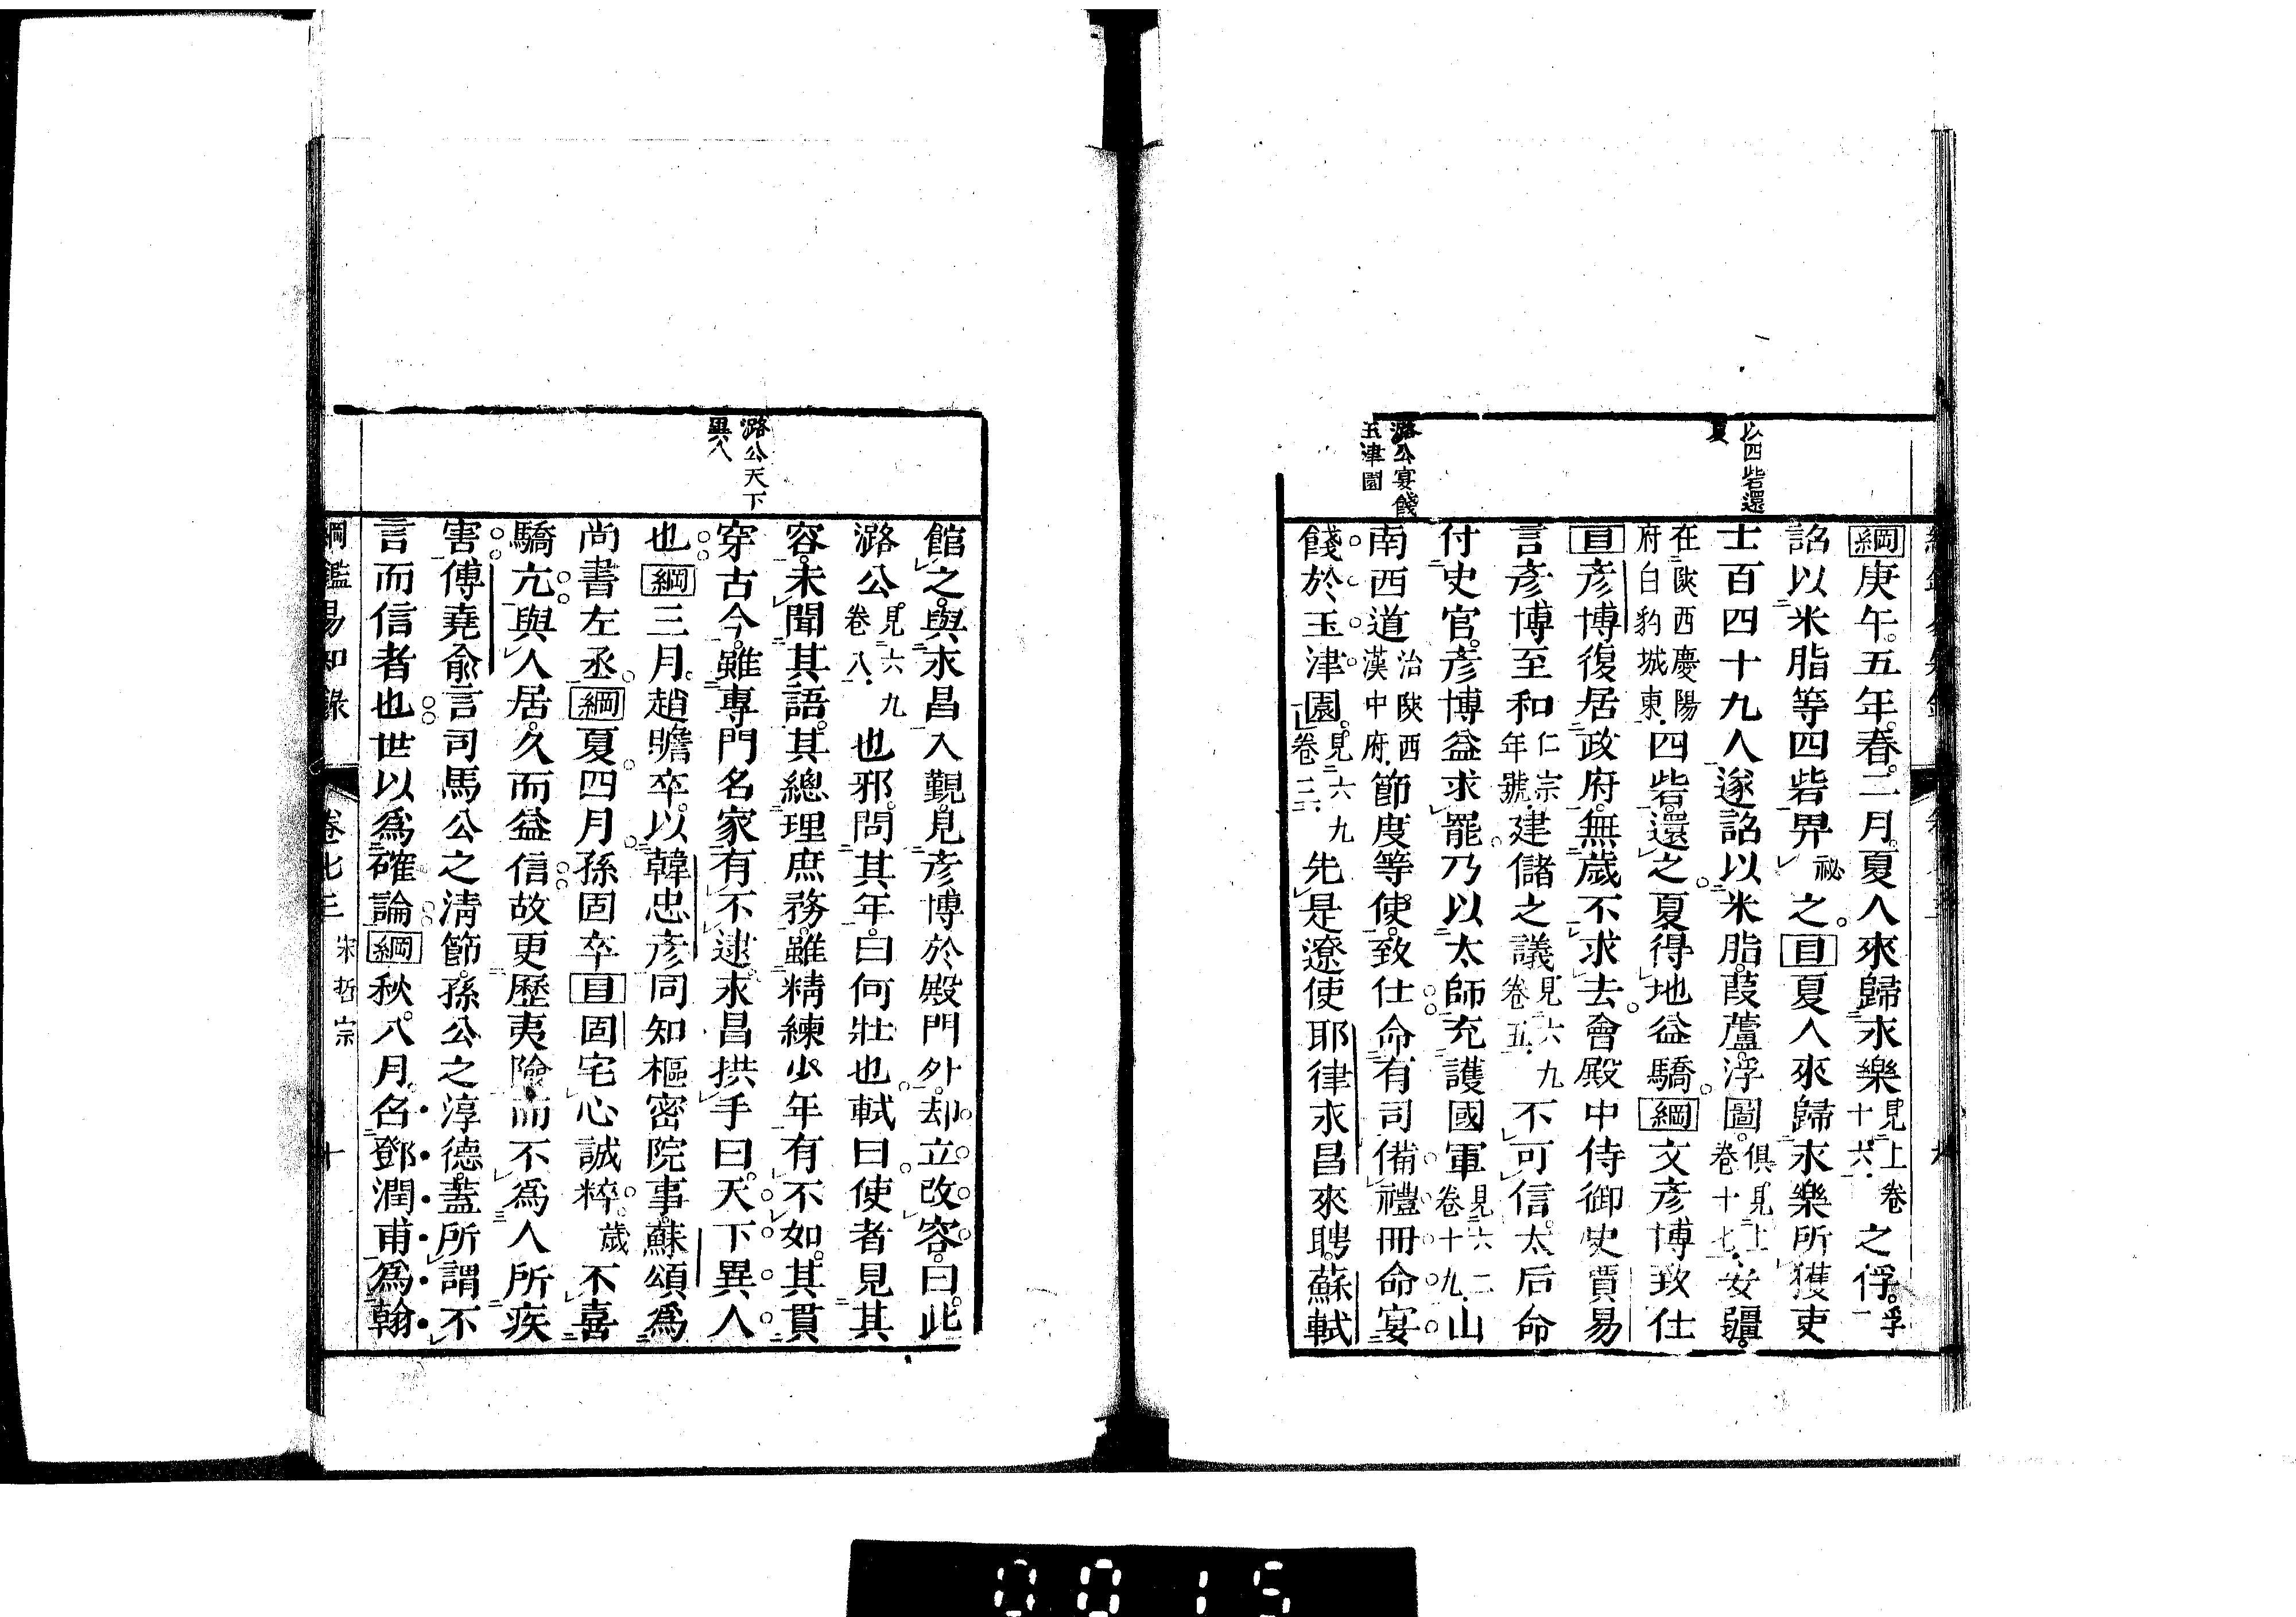 以四砦還
夏
潞公宴餞
玉津園
綱庚午。五年。春。二月。夏人來歸永樂見上卷十六。之俘。孚
詔以米脂等四砦畀祕之。目夏人來歸永樂所獲吏
士百四十九人。遂詔以米脂。葭蘆。浮圖。俱見上卷十七。安疆。
在陝西慶陽府白豹城東。四砦。還之。夏得地益驕。綱文彥博致仕
目彥博復居政府。無歲不求去。會殿中侍御史賈易
言彥博至和仁宗年號。建儲之議見六九卷五。不可信。太后命
付史官。彥博益求罷。乃以太師充護國軍見六二卷十九。山
南西道治陝西漢中府。節度等使。致仕。命有司備禮冊命。宴
餞於玉津園。見六九卷三。先是遼使耶律永昌來聘。蘇軾
潞公天下
異人
館之。與永昌入覲。見彥博於殿門外。却立改容。曰。此
潞公。見六九卷八。也邪。問其年。曰何壯也。軾曰。使者見其
容。未聞其語。其總理庶務。雖精練少年有不如。其貫
穿古今。雖專門名家有不逮。永昌拱手曰。天下異人
也。綱三月。趙瞻卒。以韓忠彥同知樞密院事。蘇頌爲
尚書左丞。綱夏四月。孫固卒。目固宅心誠粹。歲不喜
驕亢。與人居。久而益信。故更歷夷險。而不爲人所疾
害。傅堯俞言司馬公之清節。孫公之淳德。蓋所謂不
言而信者也。世以爲確論。綱秋。八月。召鄧潤甫爲翰
綱鑑易知錄 卷七三 宋哲宗 十